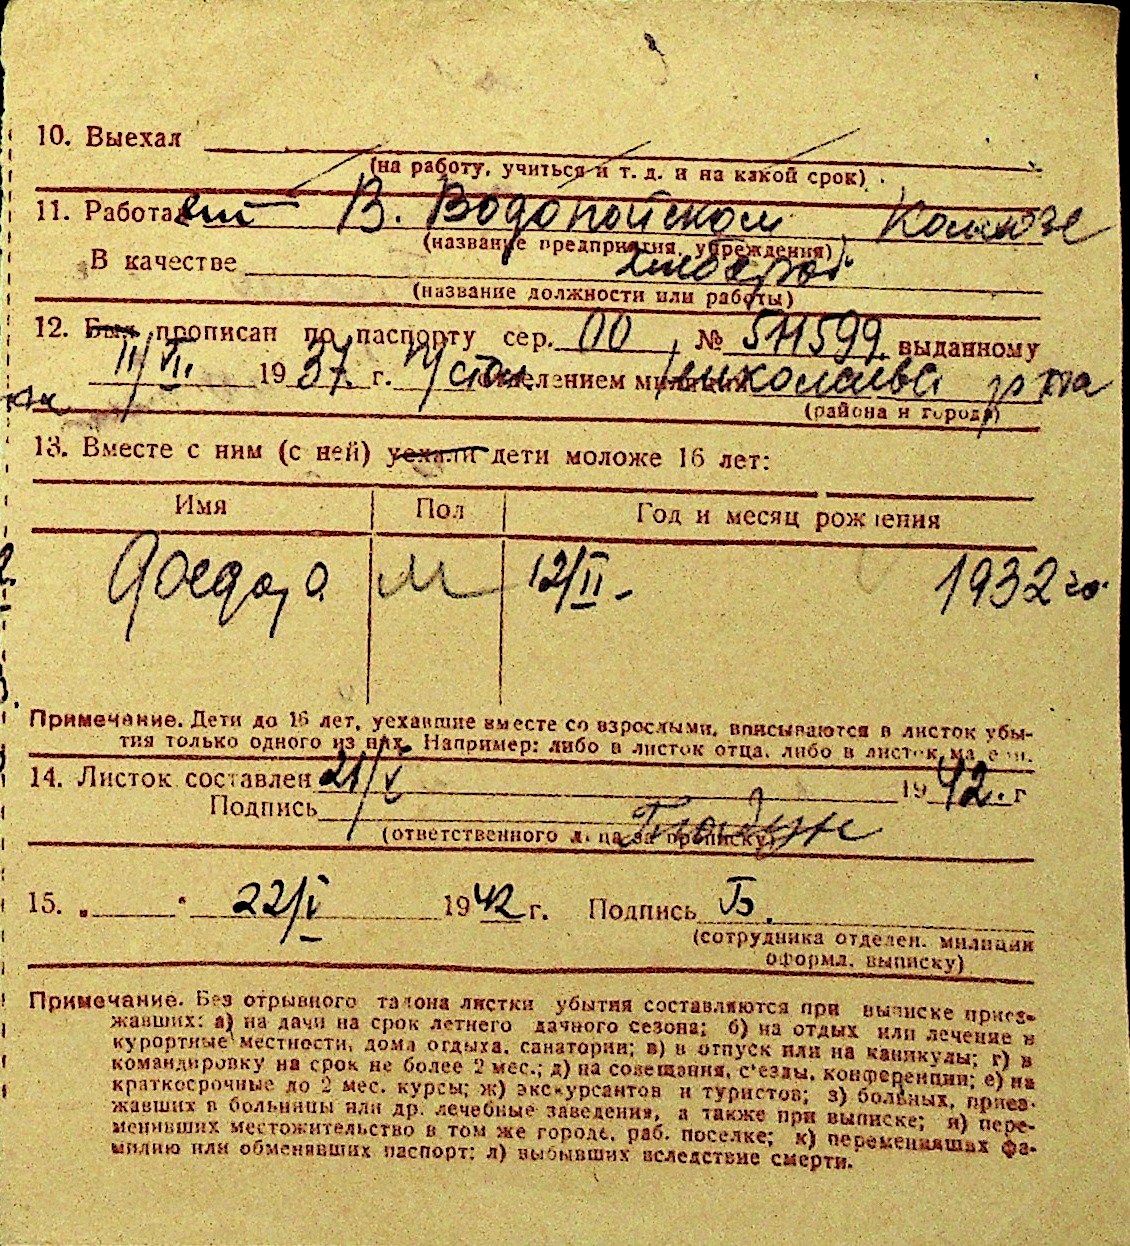 10. Выехал
(на работу, учиться и т. д. и на какой срок)
11. Работает В. Водопойском
(название предприятия, учреждения)
В качестве
(название должности или работы)
12. Был прописан по паспорту сер. 00, № 511599 выданному
III/VII. 1937. г. отделением милиции
(района и города)
13. Вместе с ним (с ней) уехали дети моложе 16 лет:
Имя Пол Год и месяц рождения
м 12/II. 1932 го.
Примечание. Дети до 16 лет, уехавшие вместе со взрослыми, вписываются в листок убы-
тия только одного из них. Например: либо в листок отца, либо в листок матери.
14. Листок составлен 21/V 1942. г
Подпись
(ответственного лица за прописку)
15. „ “ 22/V 1942 г. Подпись Б.
(сотрудника отделен. милиции
оформл. выписку)
Примечание. Без отрывного талона листки убытия составляются при выписке приез-
жавших: а) на дачи на срок летнего дачного сезона; б) на отдых или лечение в
курортные местности, дома отдыха, санатории; в) в отпуск или на каникулы; г) в
командировку на срок не более 2 мес.; д) на совещания, с'езды, конференции; е) на
краткосрочные до 2 мес. курсы; ж) экскурсантов и туристов; з) больных, приез-
жавших в больницы или др. лечебные заведения, а также при выписке; и) пере-
менивших местожительство в том же городе, раб. поселке; к) переменивших фа-
милию или обменявших паспорт; л) выбывших вследствие смерти.